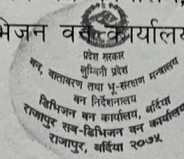 भिजन वन कार्यालय
प्रदेश सरकार
लुम्बिनी प्रदेश
वन, वातावरण तथा भू-संरक्षण मन्त्रालय
वन निर्देशनालय
डिभिजन वन कार्यालय, बर्दिया
राजापुर सब-डिभिजन वन कार्यालय
राजापुर, बर्दिया २०७५